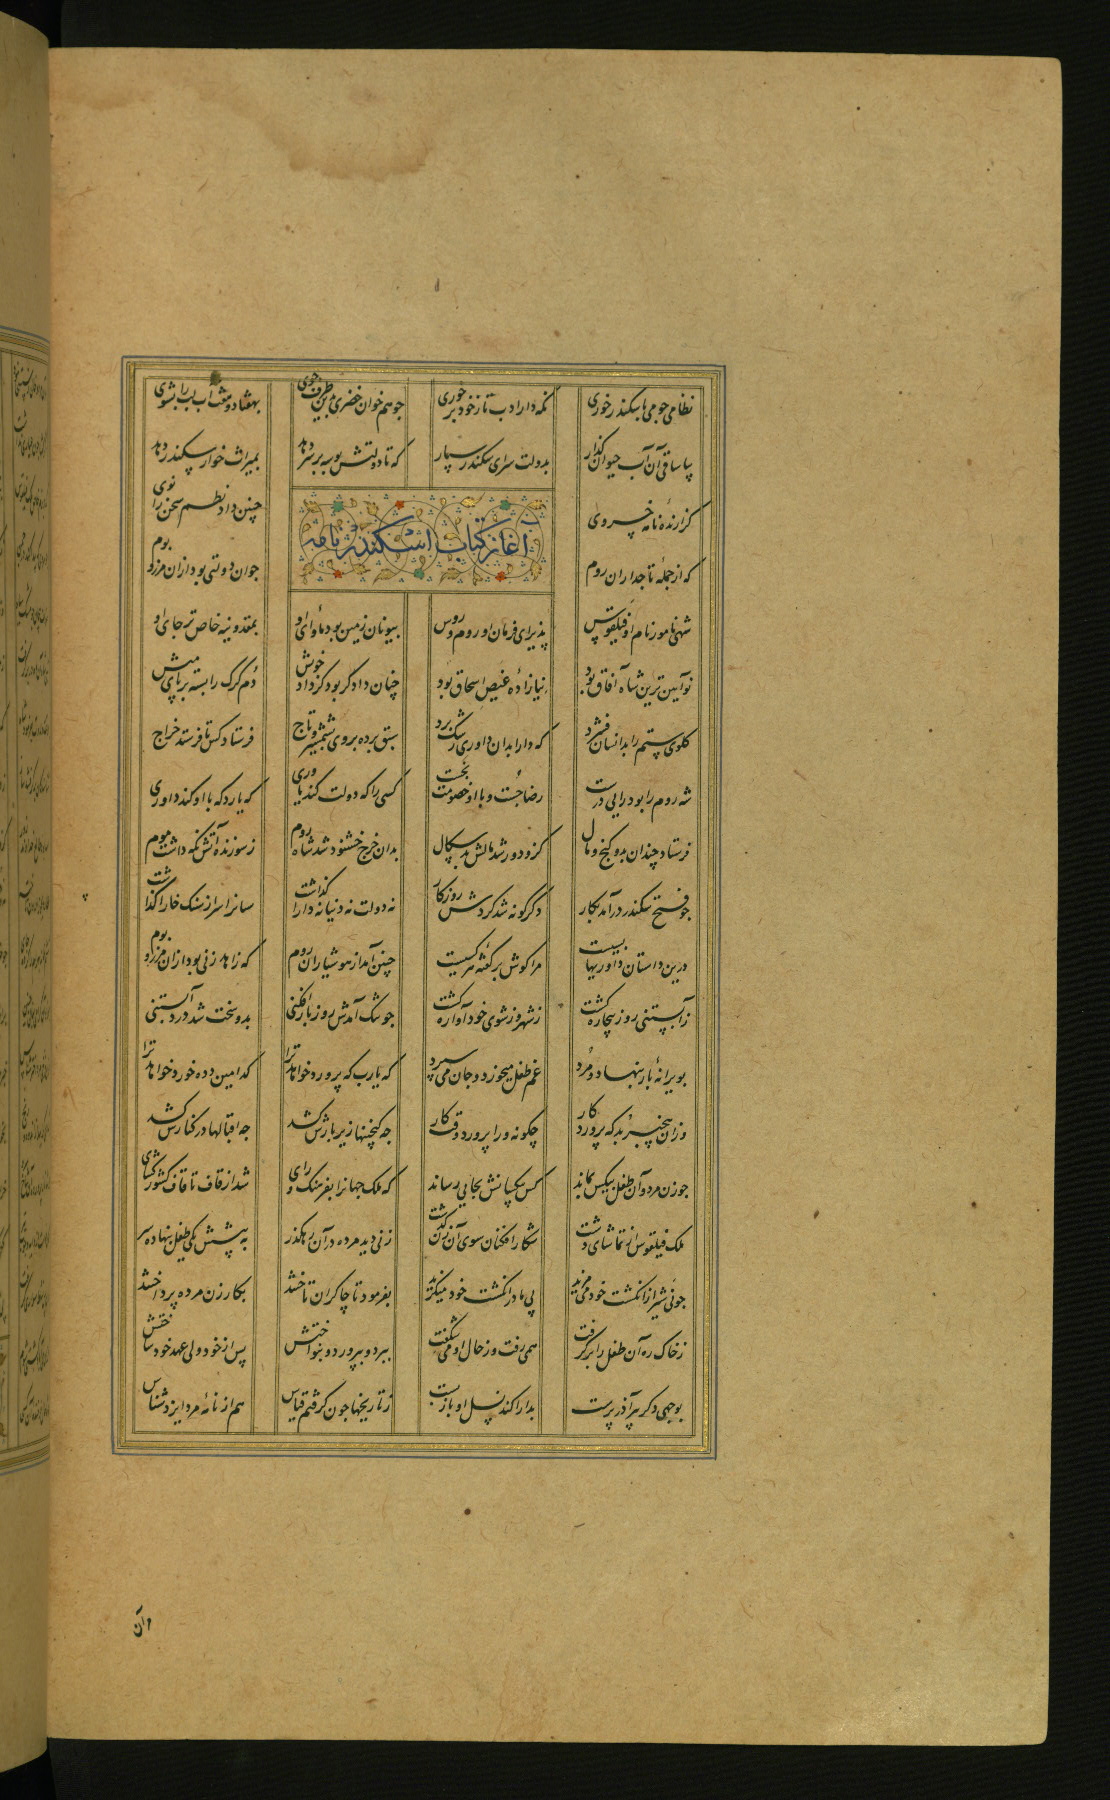 نظامی جو می با سکندر خوری نگه دار ادب تا ز خود بر خوری جو هم خوان خضری برین طرف جوی بهفتاد و هفت آب لب را بشوی
بیا ساقی آن آب حیوان گذار بدولت سرای سکندر سپار که تا دولتش بوسه بر سر دهد بمیراث خوار سکندر دهد
گزارندهٔ نامه خسروی چنین داد نظم سخن را نوی
آغاز کتاب اسکندرنامه
که از جمله تاجداران روم جوان دولتی بود از ان مرز و بوم
شهی نامور نام او فیلقوس پذیرای فرمان او روم و روس بیونان زمین بود ماوای او بمقدونیه خاص تر جای او
نو آیین ترین شاه آفاق بود نیا زادهٔ عیص اسحاق بود چنان دادگر بود کز داد خویش دم گرگ را بسته بر پای میش
کلوی ستم را بدانسان فشرد که دارا بدان داوری رشک برد سبق برده بر وی بشمشیر و تاج فرستاد کس تا فرستد خراج
شه روم را بود رایی درست رضا جست و با او خصومت نجست کسی را که دولت کند یاوری که یارد که با او کند داوری
فرستاد چندان بدو کنج و مال کزو دور شد مالش بد سکال بدان خرج خشنود شد شاه روم ز سوزنده آتش نکه داشت موم
جو فتح سکندر در آمد بکار دکر کونه شد کردش روزکار نه دولت نه دنیا نه دارا گذاشت سنانرا سر از سنک خارا گذاشت
درین داستان داوریها بسیست مرا کوش بر کفته هر کسیست چنین آمد از هوشیاران روم که زاهد زنی بود از ان مرز و بوم
ز آبستنی روز بیچاره کشت ز شهر و ز شوی خود آواره کشت جو تنک آمدش روز بار افکنی بدو سخت شد درد آبستنی
بویرانهٔ بار بنهاد و مرد غم طفل میخورد و جان می سپرد که یارب که پرورد خواهد ترا کدامین دده خورد خواهد ترا
وزان بیخبر بد که پرورد کار چکونه ورا پرورد وقت کار جه کنجینها زیر بارش کشد جه اقبالها در کنارش کشد
جو زن مرد و آن طفل بیکس بماند کس بیکسانش بجایی رساند که ملک جهانرا بفرهنک و رای شد از قاف تا قاف کشور کشای
ملک فیلقوس از تماشای دشت شکار افکنان سوی آن زن کذشت زنی دید مرده در آن رهکذر به پیشش یکی طفل بنهاده سر
جو بی شیر از انکشت خود می مزید پی مادر انکشت خود میکزید بفرمود تا چاکران تاختند بکار زن مرده پرداختند
ز خاک ره آن طفل را برکرفت همی رفت و ز حال او می شکفت ببرد و بپرورد و بنواختش پس از خود ولی عهد خود ساختش
بوجهی دکر پیر آذر پرست بدارا کند نسل او باز بست ز تاریخها جون کرفتم قیاس هم از نامهٔ مرد ایزد شناس